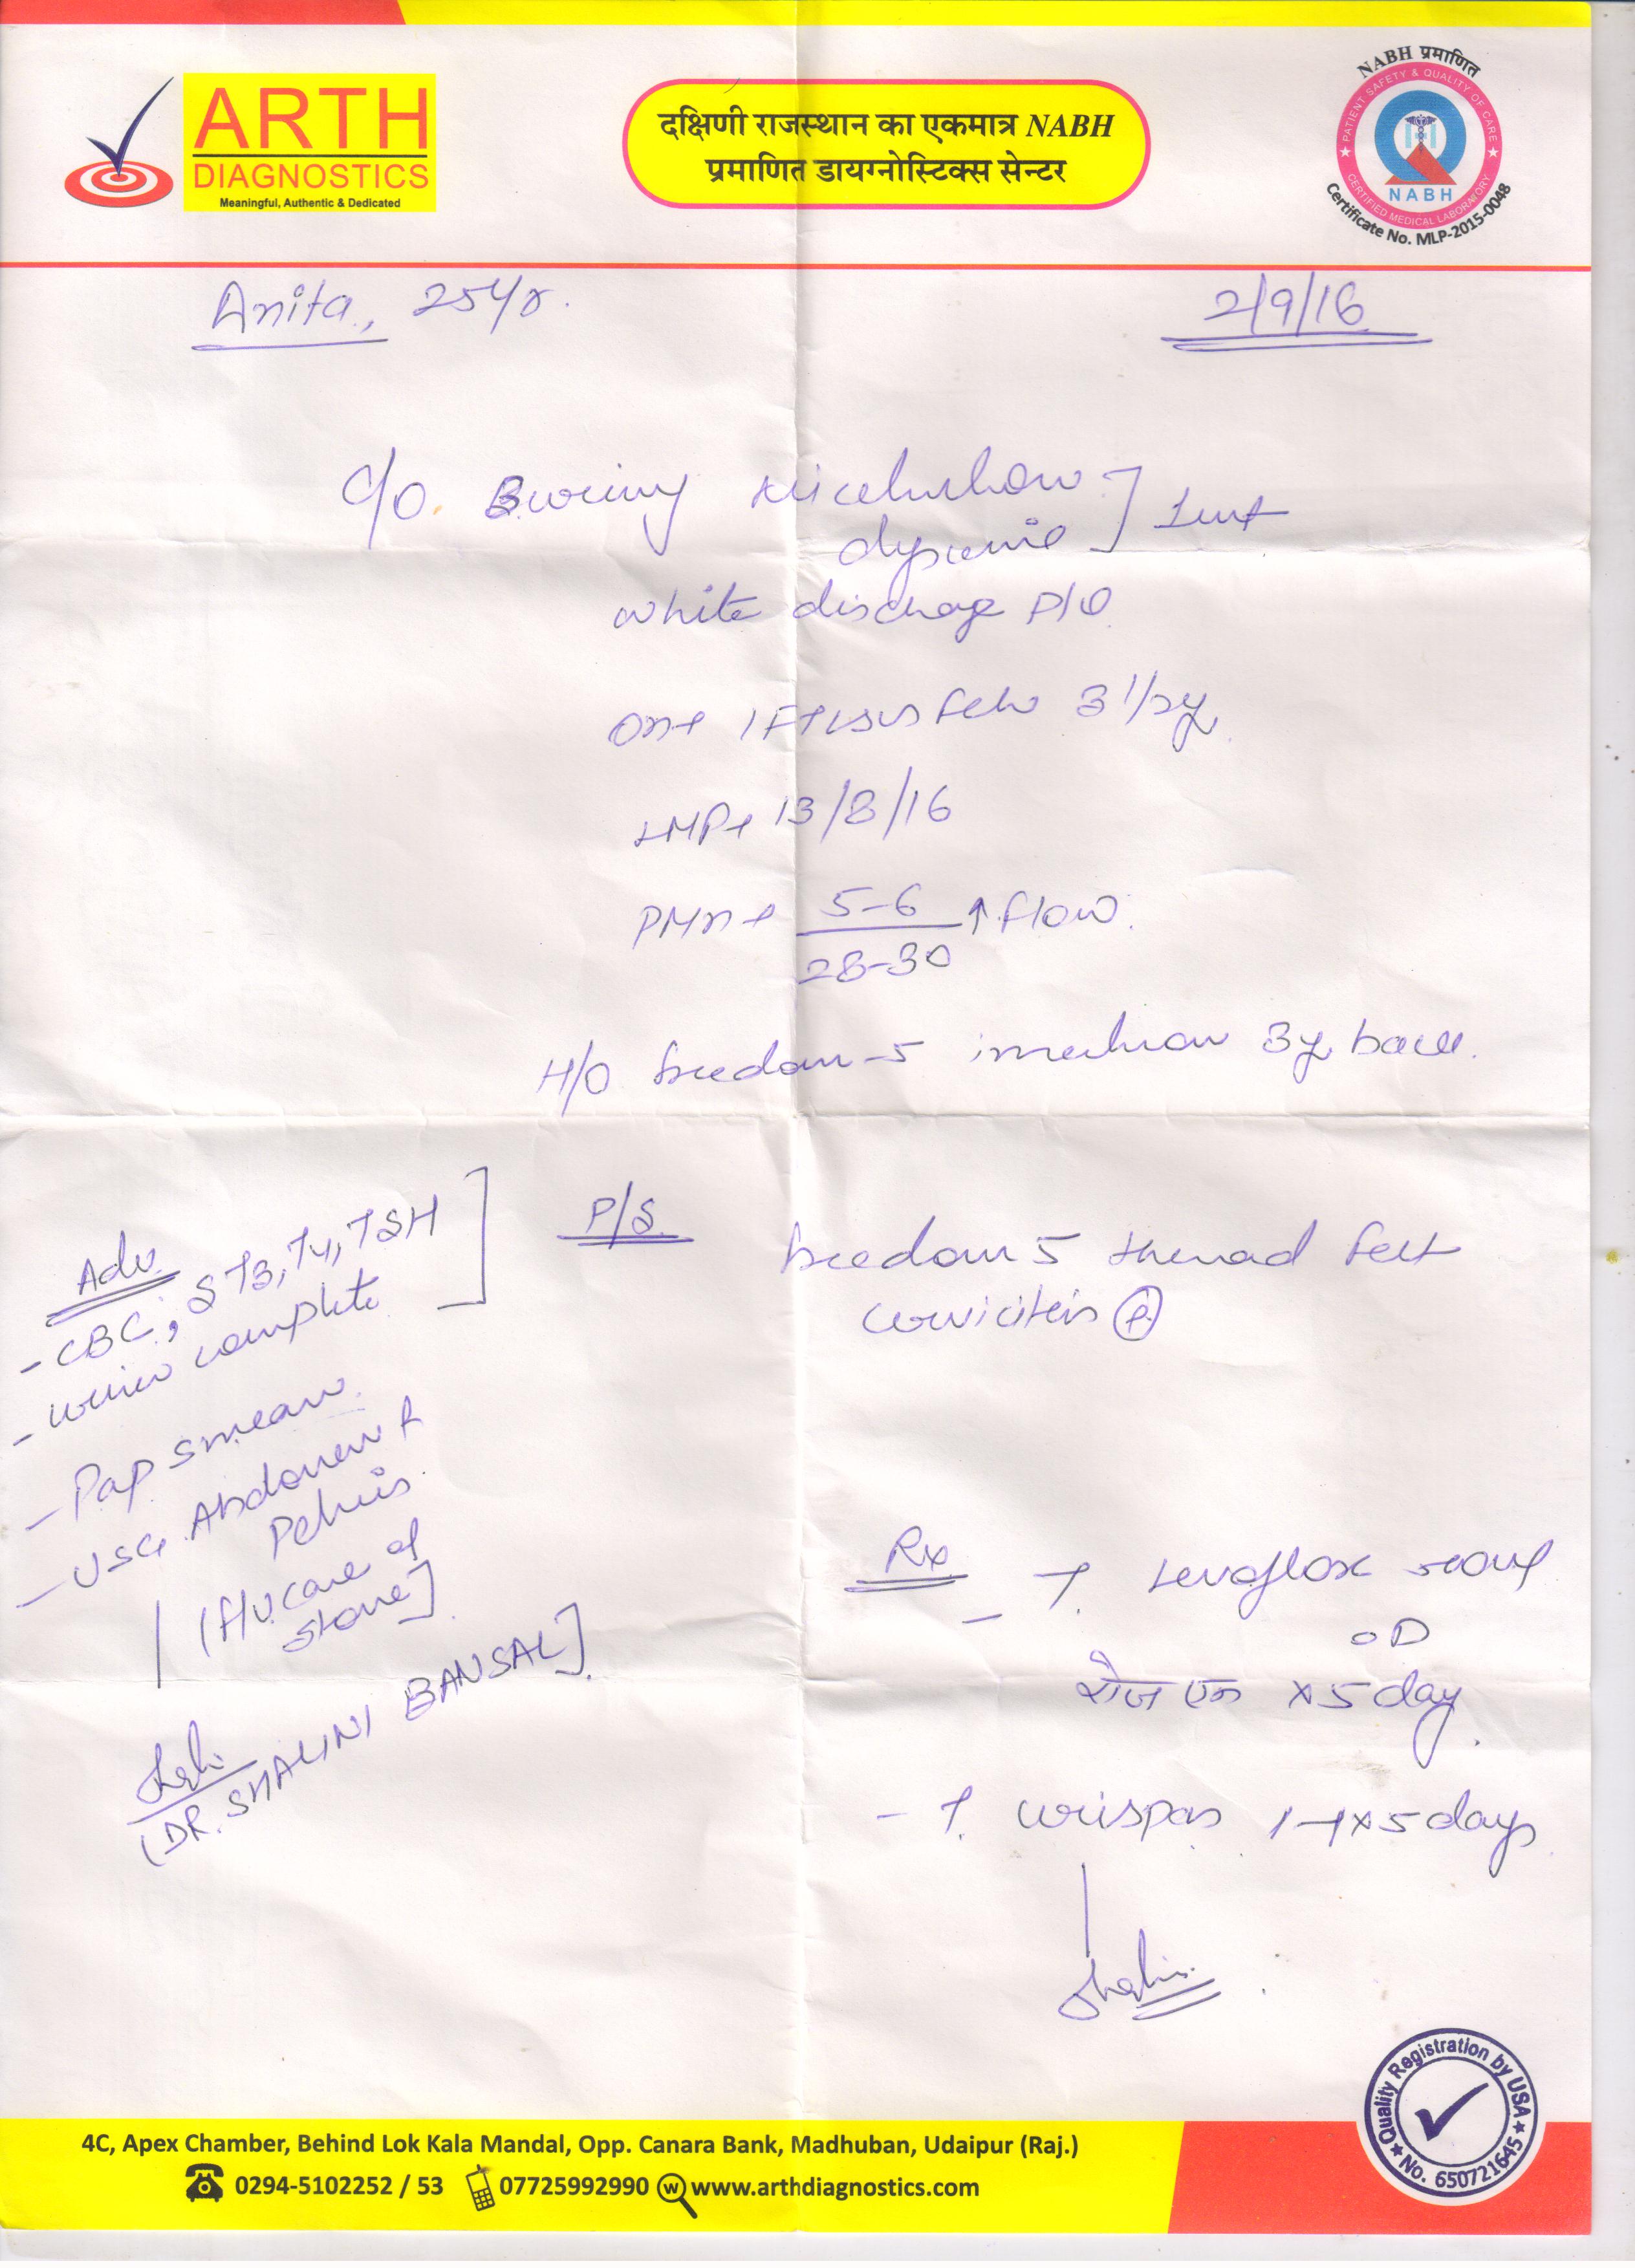 ARTH
DIAGNOSTICS
Meaningful, Authentic & Dedicated
दक्षिणी राजस्थान का एकमात्र NABH
प्रमाणित डायग्नोस्टिक्स सेन्टर
NABH प्रमाणित
PATIENT SAFETY & QUALITY OF CARE
NABH
CERTIFIED MEDICAL LABORATORY
Certificate No. MLP-2015-0048
Anita, 25 Yr.
2/9/16
C/O. Burning micturition
dysuria
white discharge P/V
LMP 13/8/16
5-6 ↑ flow.
28-30
H/O freedom-5 insertion 3y back.
P/S. freedom 5 thread felt
cervicitis
Adv.
- CBC, S T3, T4, TSH
- urine complete
- Pap smear
- USG Abdomen &
Pelvis
(f/u case of
stone)
(DR. SHALINI BANSAL)
Rx - T. Levoflox 500mg
OD
रोज एक x 5 day
- T. urispas 1-1 x 5 days
Quality Registration by USA
No. 650721645
4C, Apex Chamber, Behind Lok Kala Mandal, Opp. Canara Bank, Madhuban, Udaipur (Raj.)
0294-5102252 / 53 07725992990 w www.arthdiagnostics.com